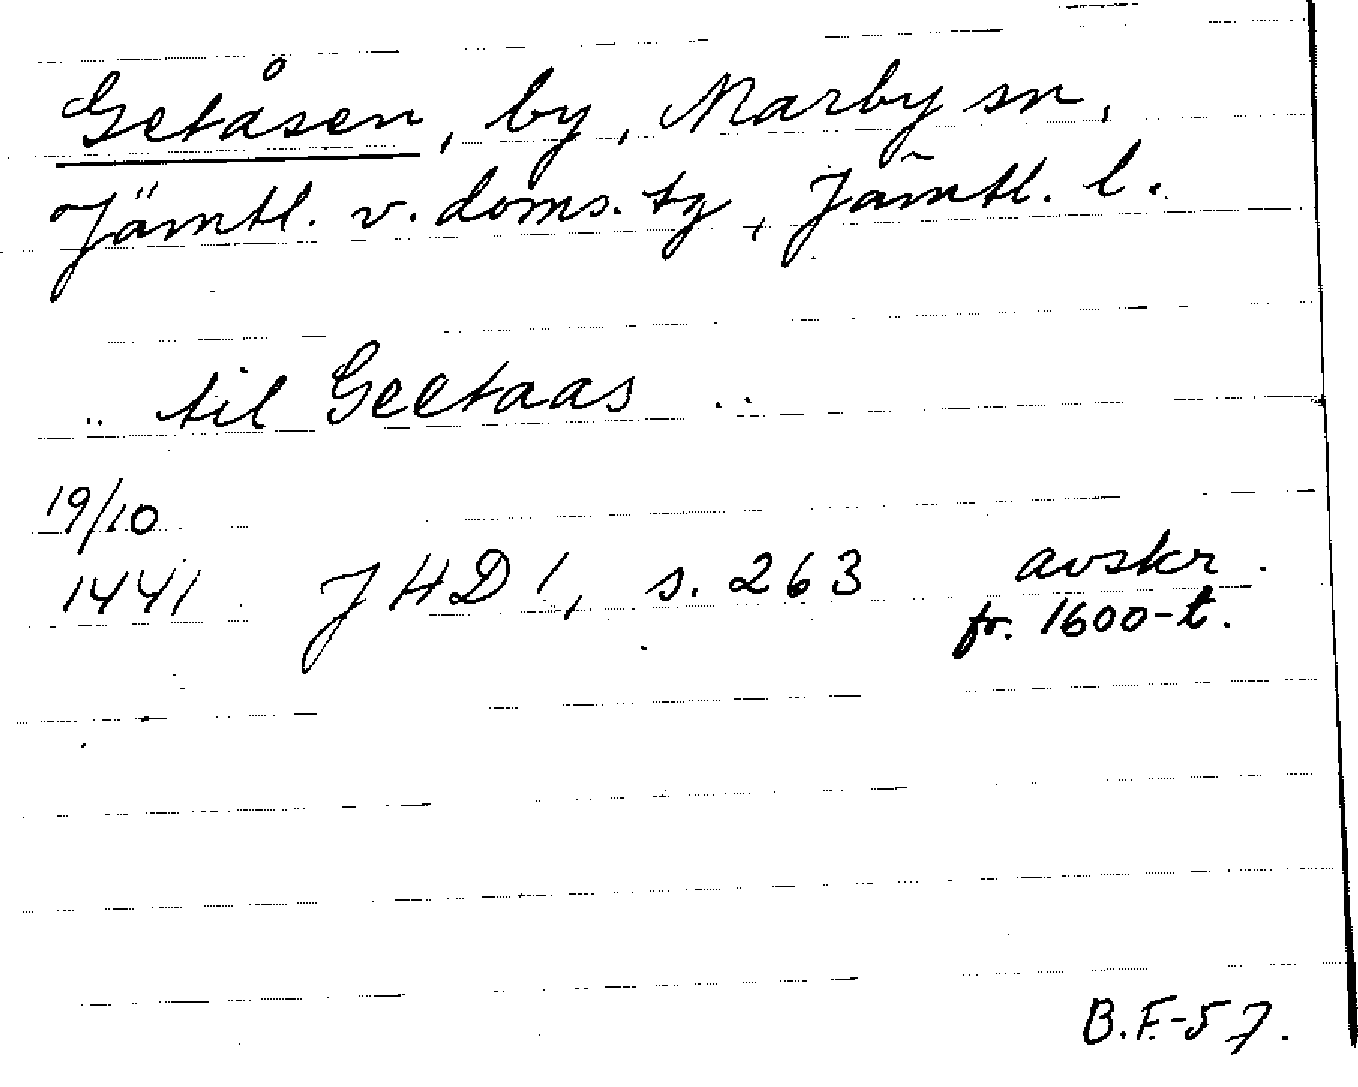 Getåsen, by, Marby sn,
Jämtl. v. doms. tg, Jämtl. l.
.. til Geetaas ..
19/10
1441 JHD 1, s. 263 avskr.
fr. 1600-t.
B.F.-57.